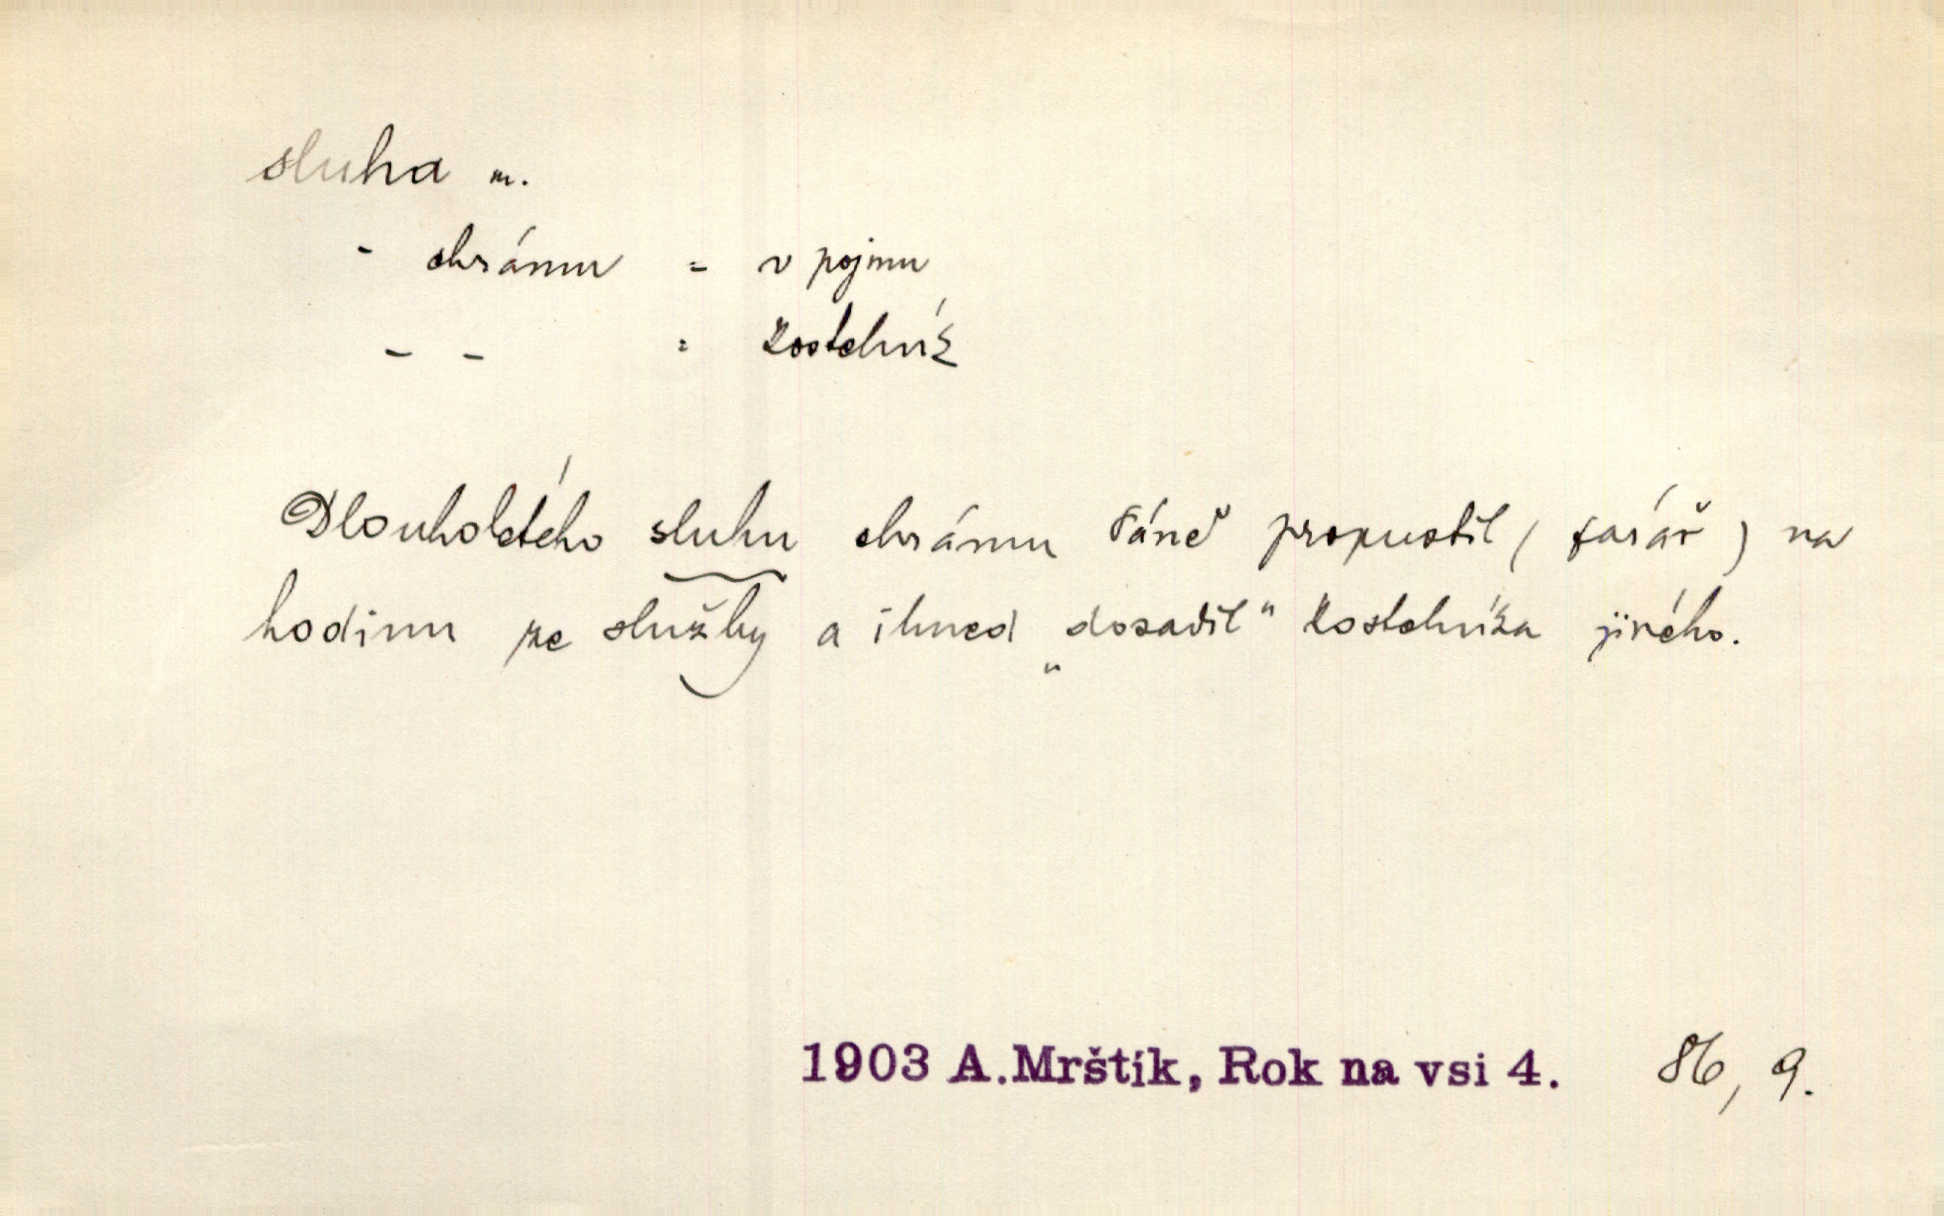 sluha m.
- chrámu = v pojmu
- - = kostelník
Dlouholetého sluhu chrámu Páně propustil (farář) na
hodinu ze služby a ihned „dosadil" kostelníka jiného.
1903 A.Mrštík, Rok na vsi 4. 86, 9.